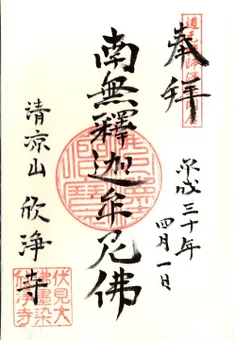 奉拝
平成三十年
四月一日
南無釋迦牟尼佛
清涼山 欣浄寺
伏見大
佛墨染
欣浄寺